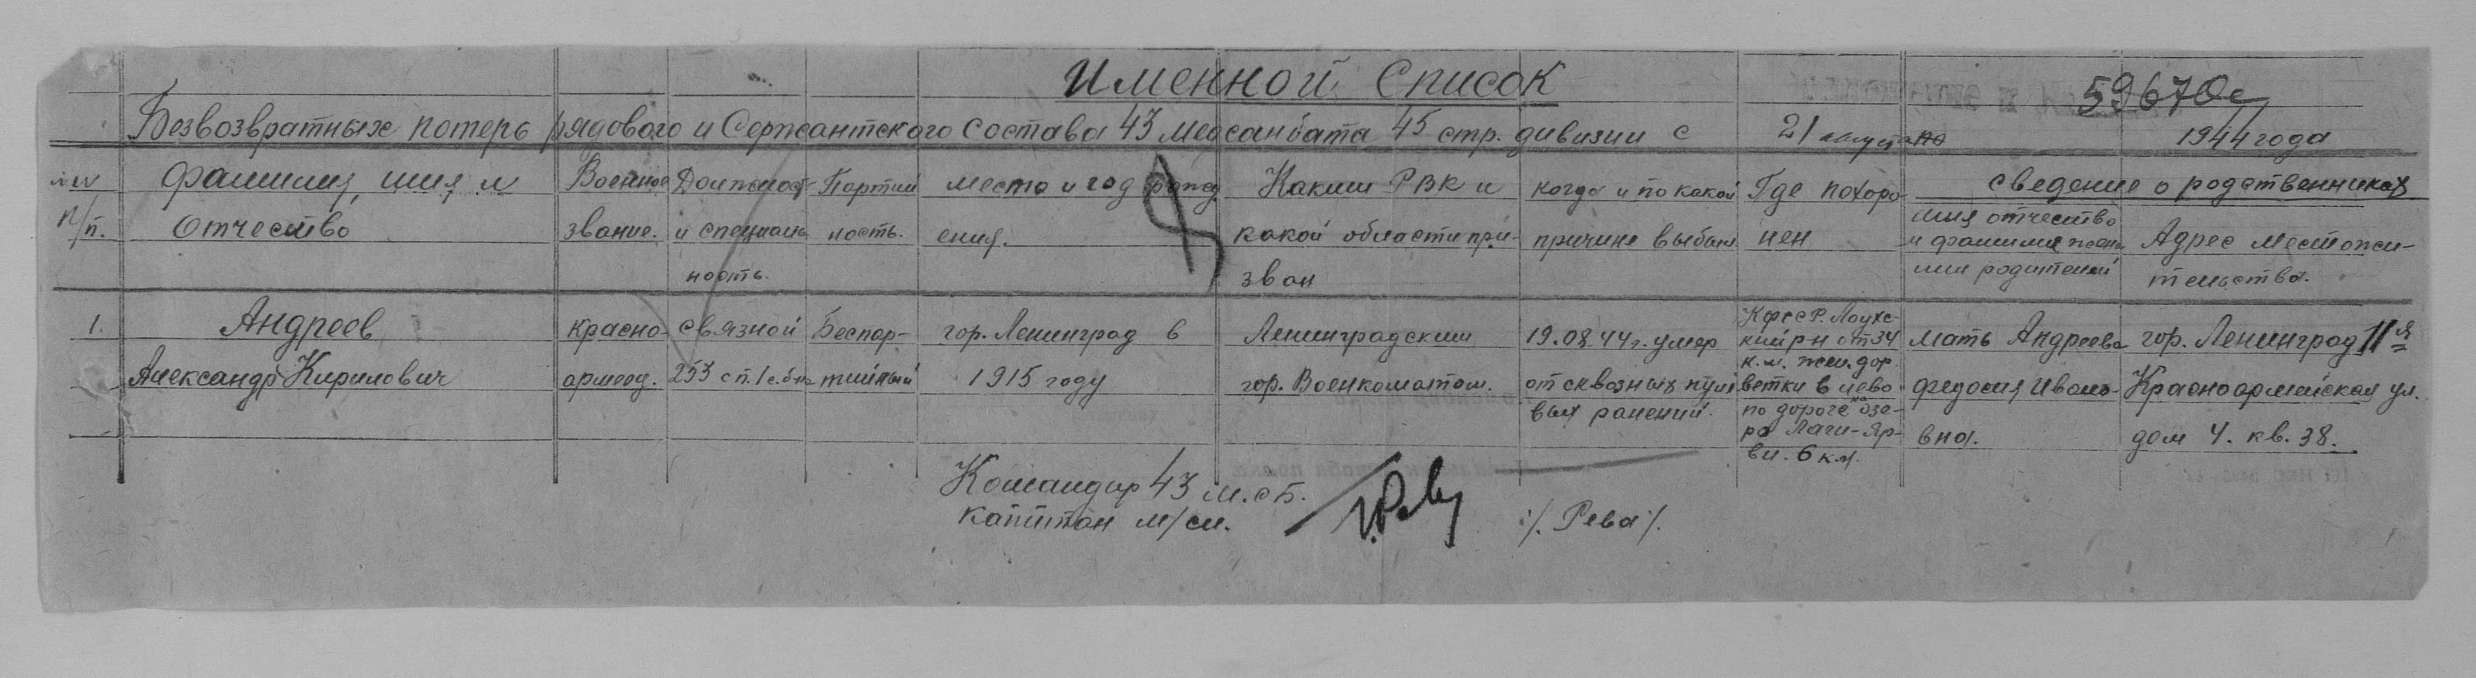 Именной Список
59670с
Безвозвратных потерь рядового и Сержантского состава 43 медсанбата 45 стр. дивизии с 21 августа по 1944 года
№№ п/п.
Фамилия, имя и отчество
Военное звание.
Должность и специальность.
Партийность.
место и год рождения.
Каким РВК и какой области призван
когда и по какой причине выбыл
Где похоронен
сведение о родственниках
имя отчество и фамилия жены или родителей
Адрес местожительства.
1.
Андреев Александр Кирилович
красноармеец.
связной 253 сп. 1 с. б-на
Беспартийный
гор. Ленинград в 1915 году
Ленинградским гор. Военкоматом.
19.08.44г. умер от сквозных пулевых ранений.
КФССР. Лоухский р-н от 34 к.м. жел. дор. ветки влево по дороге на озеро Лаги-Ярви. 6 км.
мать Андреева Федосия Ивановна.
гор. Ленинград 11я Красноармейская ул. дом 4. кв. 38.
Командир 43 м.сб.
капитан м/сл.
/. Рева /.